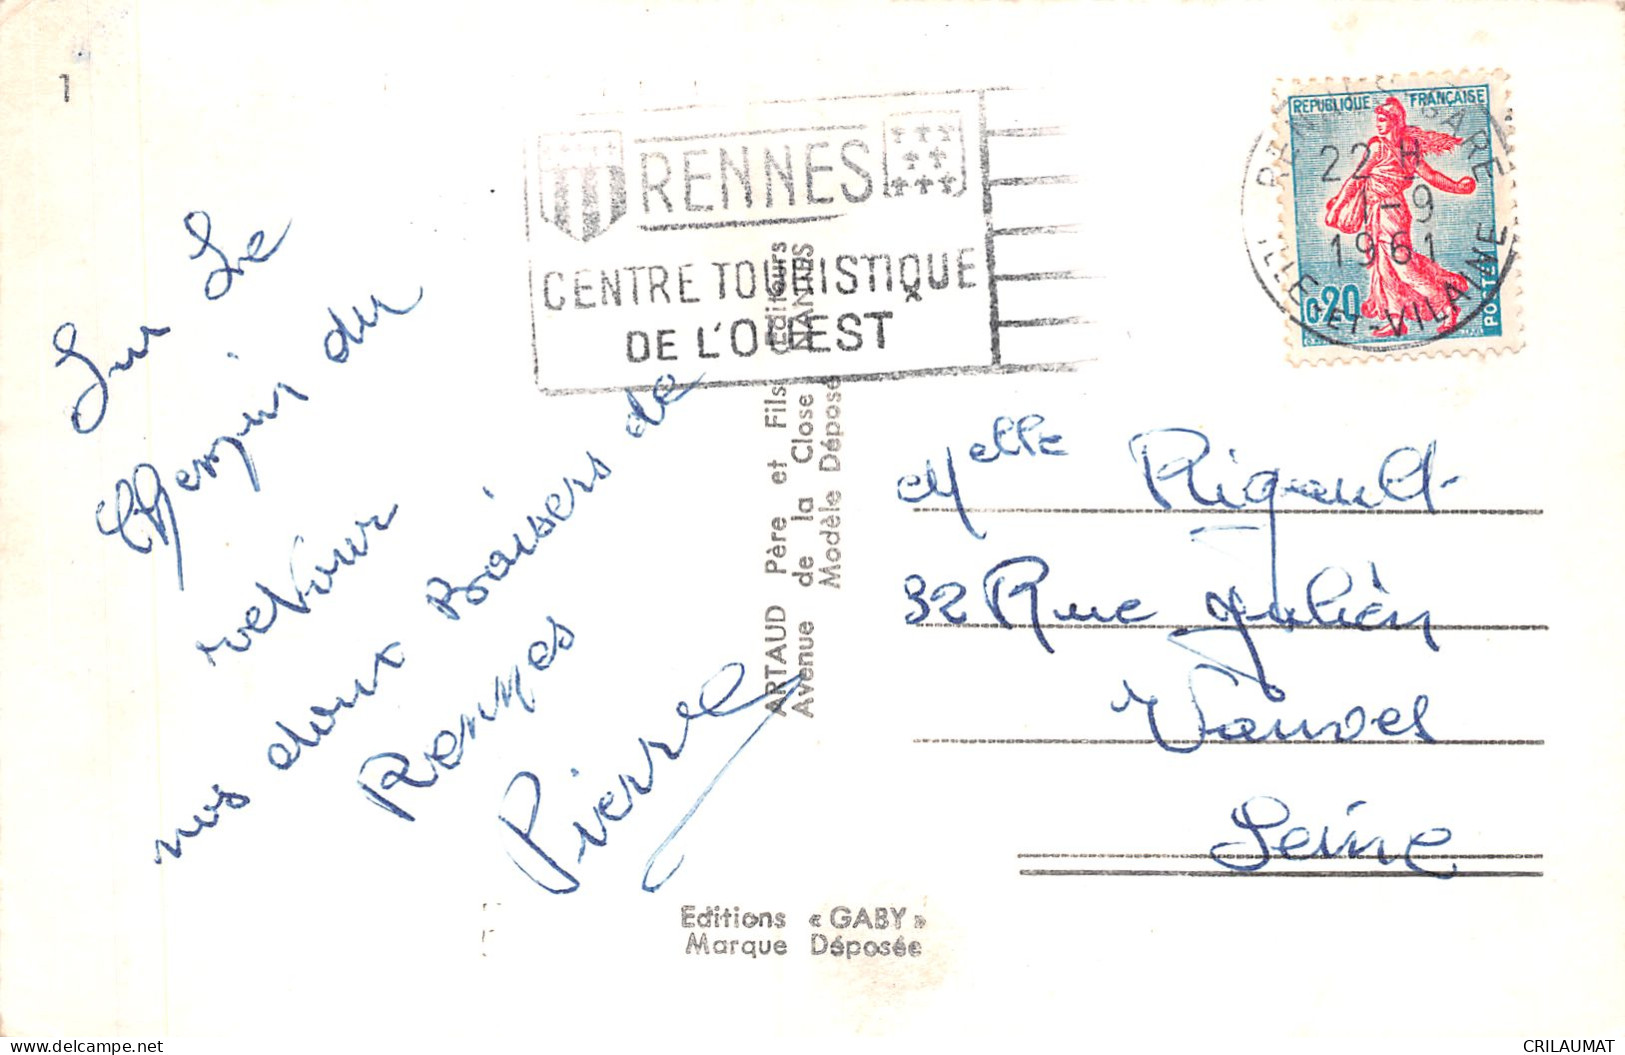 1
RENNES
CENTRE TOURISTIQUE
DE L'OUEST
REPUBLIQUE FRANÇAISE
0,20
POSTES
RENNES GARE
22 H
1-9
1961
ILLE-ET-VILAINE
Sur Le
Chemin du
retour
nos doux Baisers de
Rennes
Pierre
ARTAUD Père et Fils Editeurs
Avenue de la Close NANTES
Modèle Déposé
Melle Rigault
32 Rue Julien
Vanves
Seine
Editions « GABY »
Marque Déposée
delcampe.net
CRILAUMAT